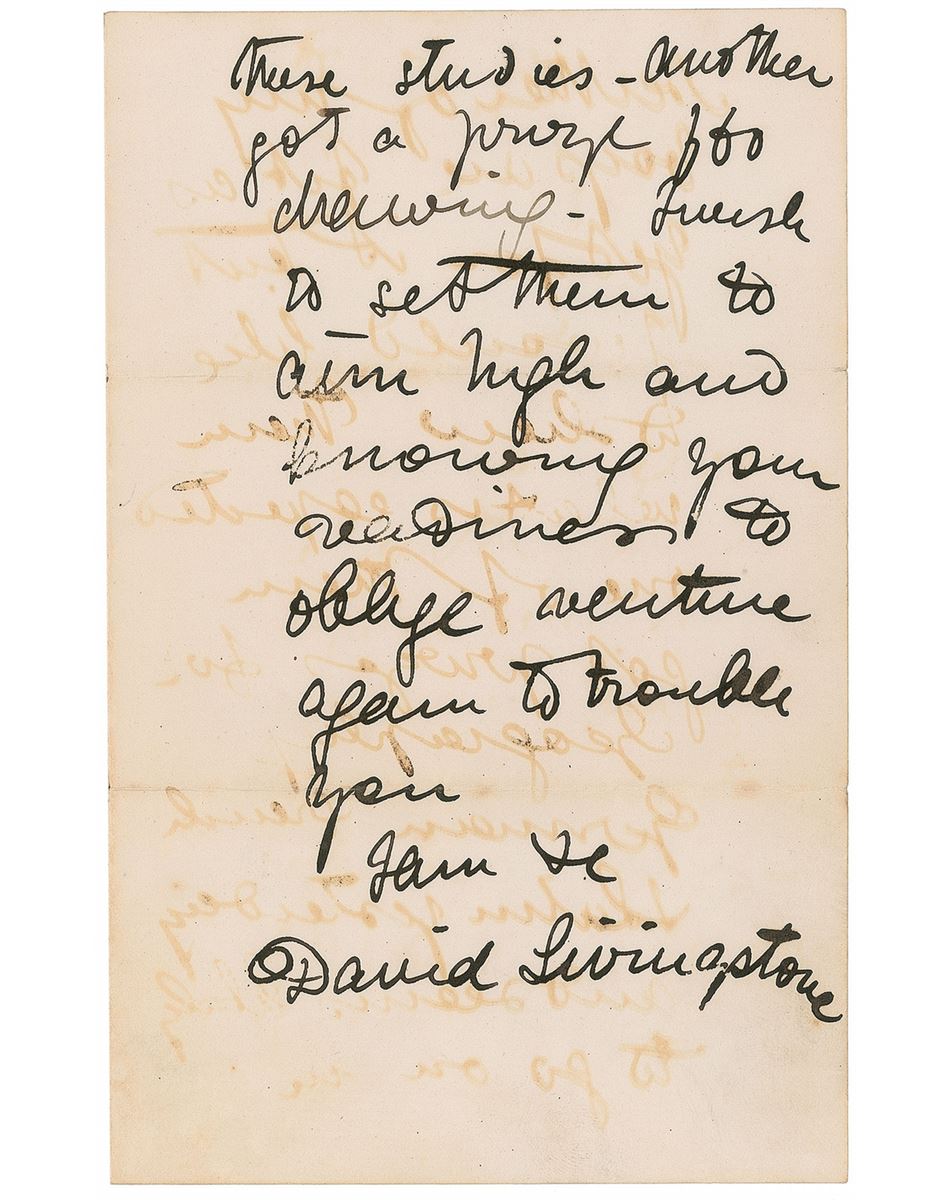 these studies - another
got a prize for
drawing - I wish
to set them to
aim high and
knowing your
readiness to
oblige venture
again to trouble
you
I am &c
David Livingstone